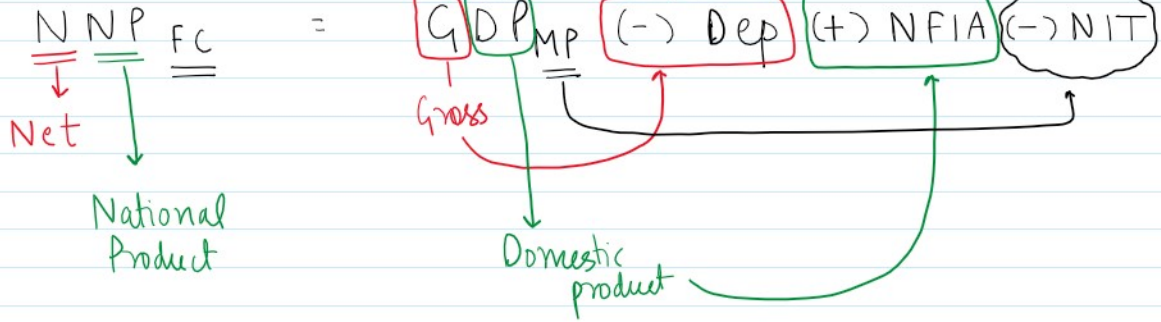 NNP FC = GDP MP (-) Dep (+) NFIA (-) NIT
Gross
Net
National
Product
Domestic
product